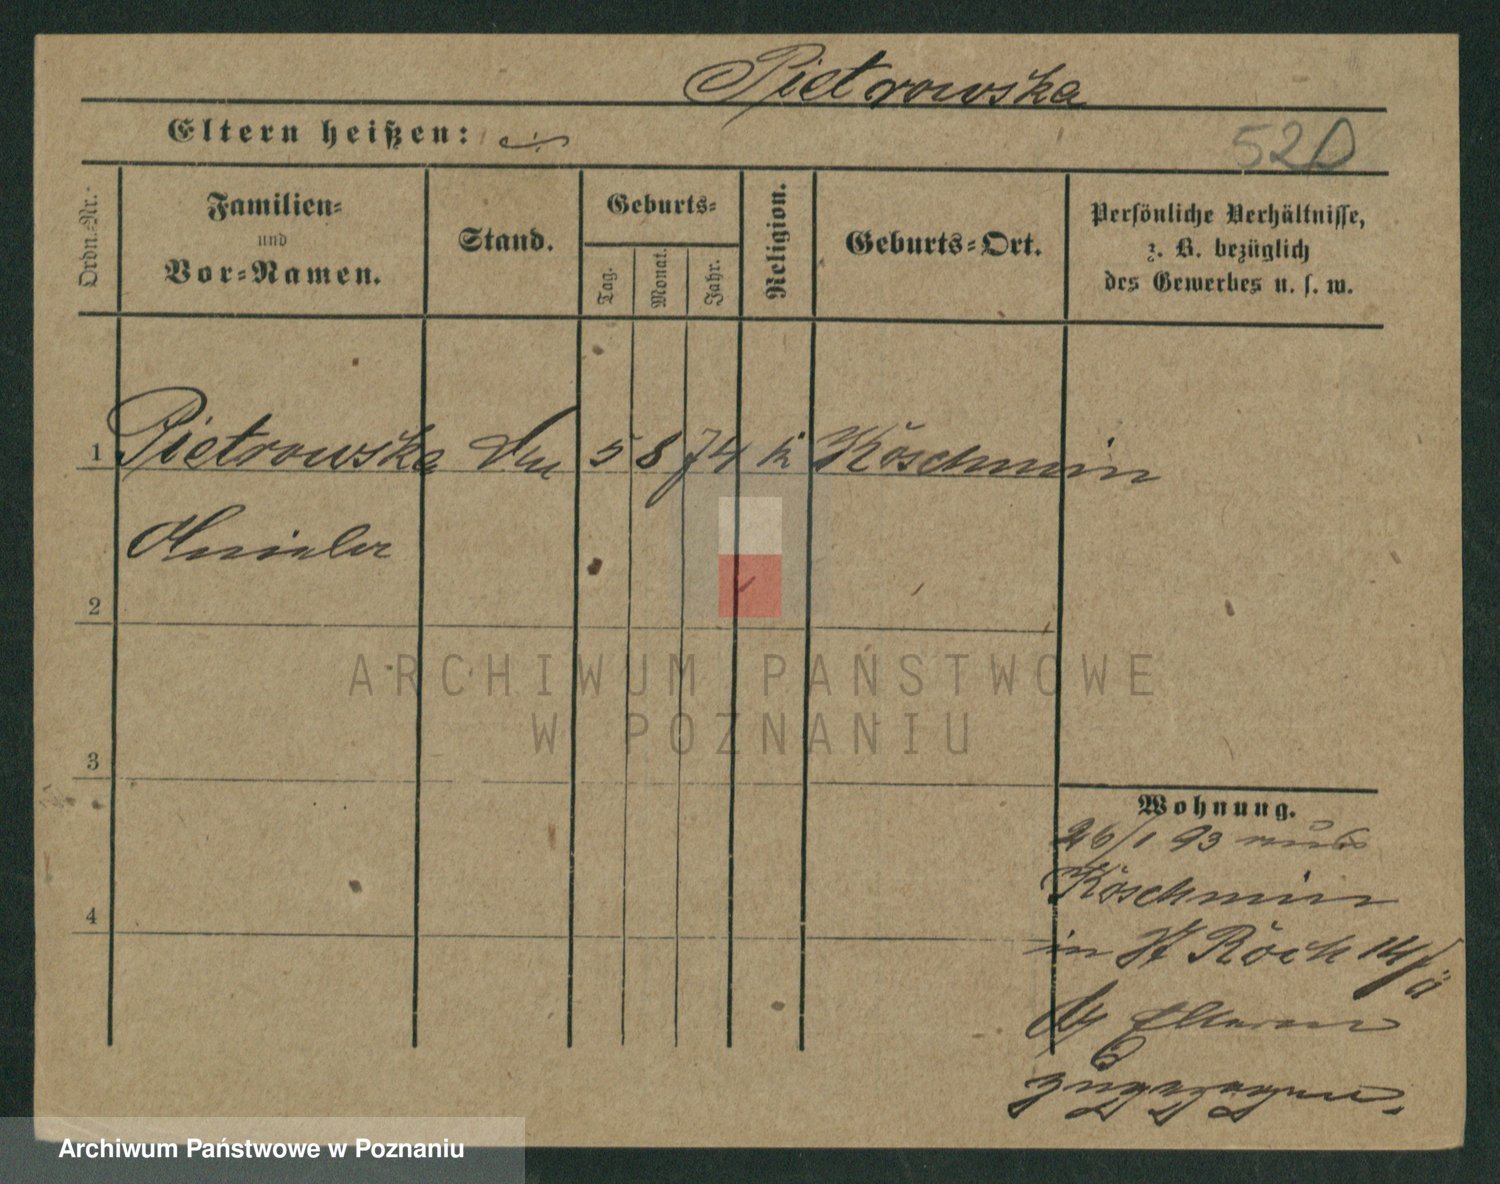 Pietrowska
Eltern heißen:
52D
Ordn.-Nr.
Familien-
und
Vor-Namen.
Stand.
Geburts-
Tag.
Monat.
Jahr.
Religion.
Geburts-Ort.
Persönliche Verhältnisse,
z. B. bezüglich
des Gewerbes u. s. w.
1 Pietrowska 5 8 74 k Koschmin
2
3
4
Wohnung.
26/1 93 aus
Koschmin
in St Roch 14/
Elteren
zugezogen.
ARCHIWUM PAŃSTWOWE
W POZNANIU
Archiwum Państwowe w Poznaniu